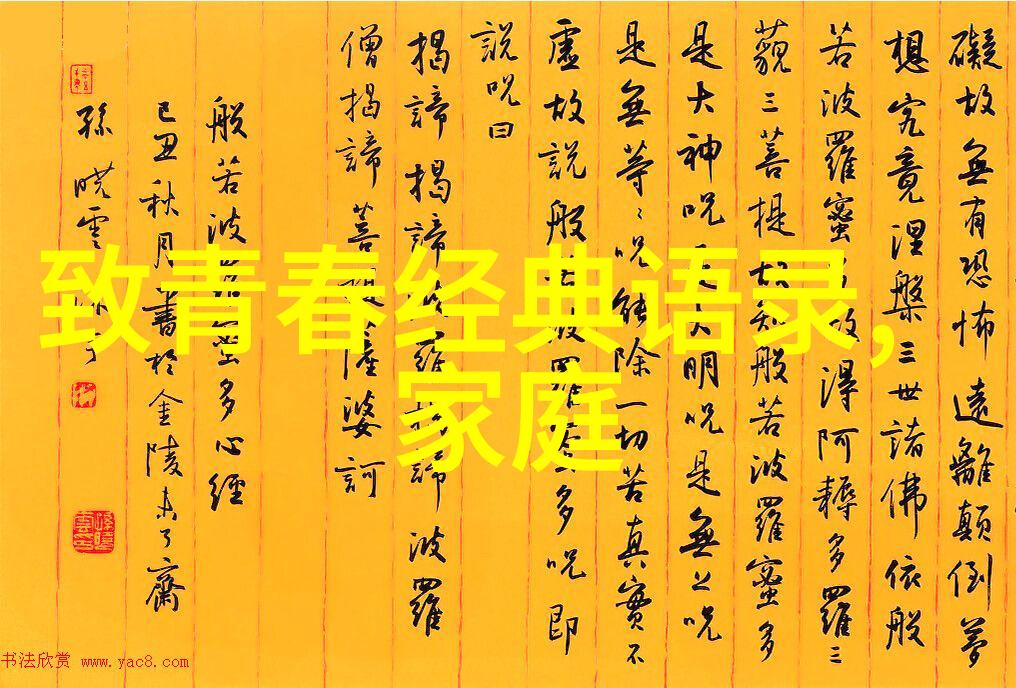 礙故無有恐怖遠離顛倒夢
想究竟涅槃三世諸佛依般
若波羅蜜多故得阿耨多羅三
藐三菩提故知般若波羅蜜多
是大神咒是大明咒是無上咒
是無等々咒能除一切苦真實不
虛故說般若波羅蜜多咒即
說咒曰
揭諦揭諦波羅揭諦波羅
僧揭諦菩提薩婆訶
般若波羅蜜多心經
己丑秋月書於金陵未了齋
孫曉雲
致青春经典语录,
家庭
书法欣赏 www.yac8.com